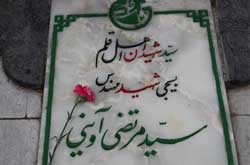 سید شهیدان اهل قلم
بسیجی شهید مهندس
سید مرتضی آوینی